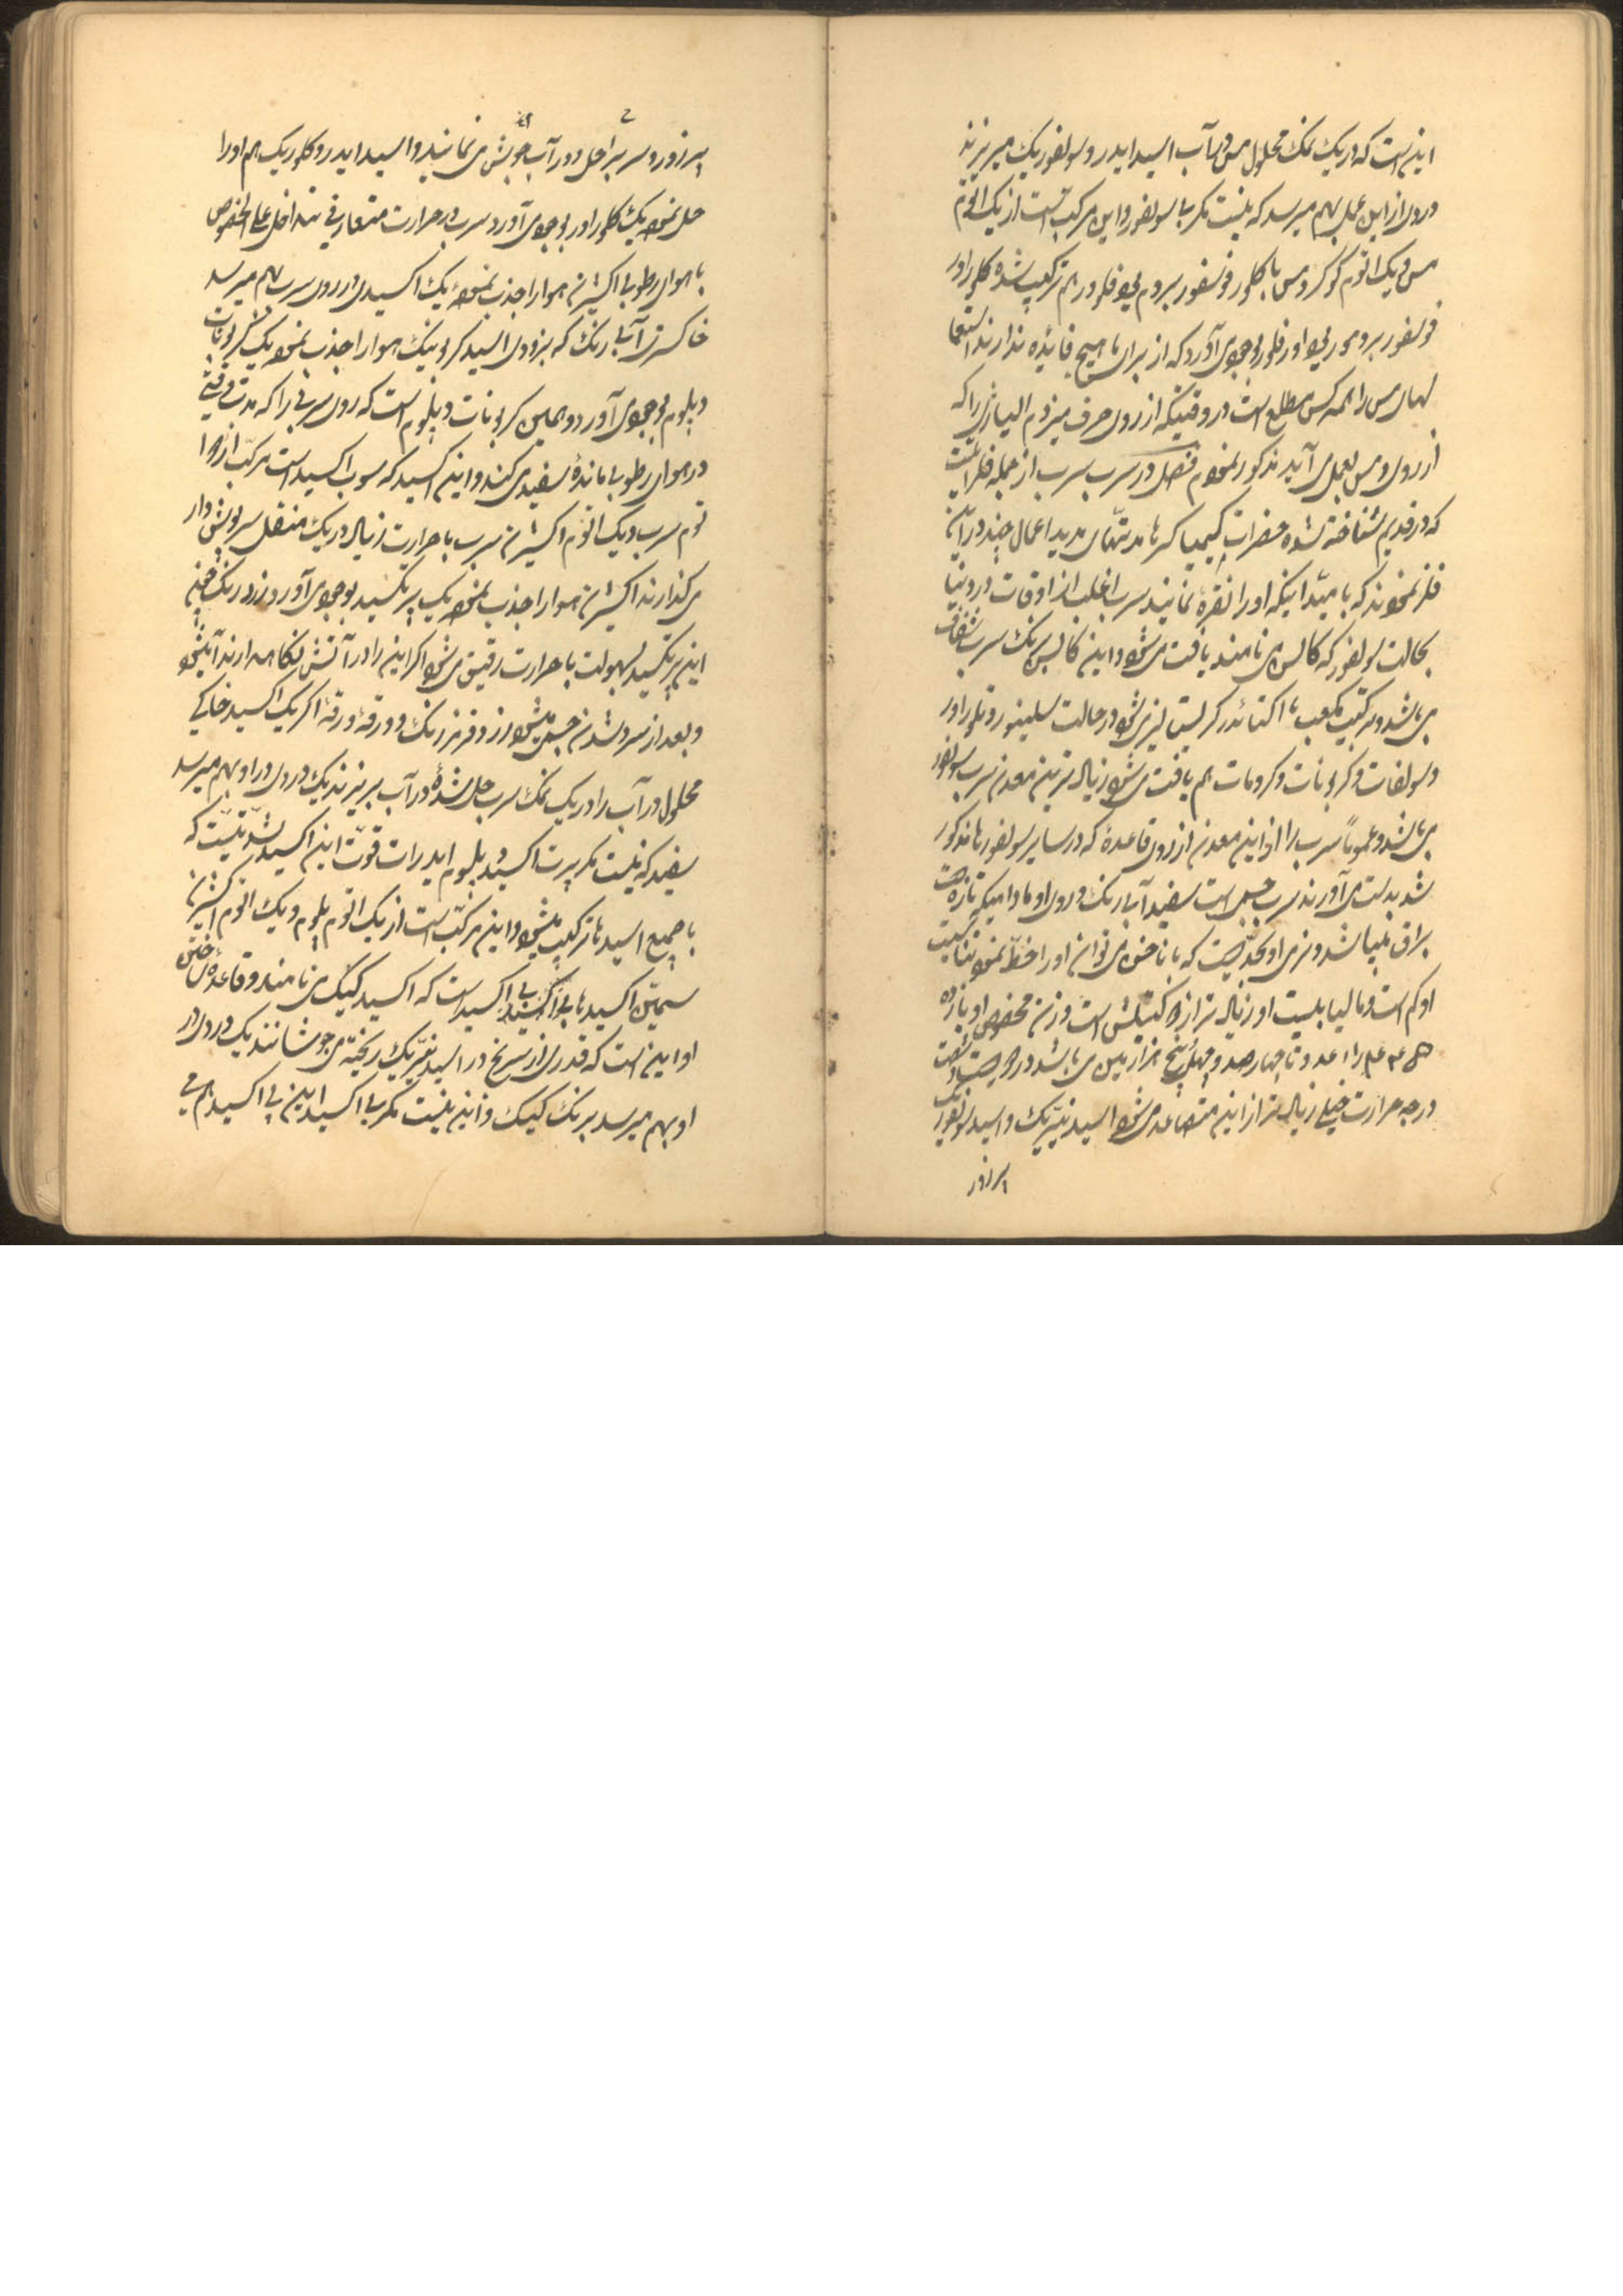 این است که در یک نمک محلول مس در آب اسید ایدروسولفوریک میریزند
دردی از این عمل بهم میرسد که نیست مگر بی سولفور و این مرکب است از یک اتوم
مس و یک اتوم گوگرد و مس با کلور فوسفور بروم یود فلور هم ترکیب شده کلوراور
فوسفور برومور یوداور فلور بوجود می آورد که از برای ما هیچ فائده ندارند استعما
لهای مس را همه کس مطلع است در وقتیکه از روی حرف میزدم الیاژی را که
از روی و مس بعمل می آید مذکور نمودم فصل در سرب سرب از جمله فلزاتیست
که در قدیم شناخته شده حضرات کیمیاگرها مدتهای مدید اعمال چند در این
فلز نمودند که بامید اینکه او را نقره نمایند سرب اغلب از اوقات در دنیا
بحالت سولفور که گالن می نامند یافت می شود و این
می باشد و بترکیب مکعب یا اکتائدر کریستالیزه می شود در حالت سلینیور و تلوراور
و سولفات و کربونات و کرومات هم یافت می شود زیاد ترین معدن سرب سولفور
می باشد و عموماً سرب را از این معدن از روی قاعده که در سایر سولفورها مذکور
شد بدست می آورند سرب جسمی است سفید آبی رنگ و روی او مادامیکه تازه است
براق میباشد و نرمی او بحدیست که با ناخن می توان او را خط نمود
او کم است و مالیابلیت او زیاد تر از وزن مخصوص او یازده
۴۴۵ را عدد تا چهارصد و چهل پنج هزارمین می باشد در
درجه حرارت خیلی زیاد تر از این متصاعد می شود اسید نیتریک و اسید سولفوریک
بر زور
بر زور و سرب را حل و در آب جوش می نمایند و اسید ایدروکلوریک هم او را
حل نموده یک کلوراور بوجود می آورد سرب در حرارت متعارفی نتدا خل علی الخصوص
با هوای رطوبی اکسیژن هوا را جذب نموده یک اکسیدی در روی سرب بهم میرسد
خاکستری آبی رنگ که بزودی اسید کربونیک هوا را جذب نموده یک کربونات
دپلوم بوجود می آورد و همین کربونات دپلوم است که روی سربی را که مدتی
در هوای رطوبی مانده سفید می کند و این اکسید که سوب اکسید است مرکب از دو ا
توم سرب و یک اتوم اکسیژن سرب با حرارت زیاد در یک منقل سرپوش دار
می گذارند اکسیژن هوا را جذب نموده یک پرتکسید بوجود می آورد زرد رنگ
این پرتکسید بسهولت با حرارت رقیق می شود اگر این را در آتش نگاه دارند آب شود
و بعد از سرد شدن جسمی میشود زرد قرمز رنگ و ورقه ورقه اگر یک اکسید خاکی
محلول در آب را در یک نمک سرب حل شده در آب بریزند یک دردی در او بهم میرسد
سفید که نیست مگر پرت اکسید دپلوم ایدرات قوت این اکسید بشدتیست که
با جمیع اسیدها ترکیب میشود و این مرکب است از یک اتوم پلوم و یک اتوم اکسیژن
سیمین اکسیدها بی اکسید است که اکسید کیک می نامند و قاعده ساختن
او این است که قدری از سرنج در اسید نیتریک ریخته می جوشانند یک دردی در
او بهم میرسد برنگ کیک و این نیست مگر بی اکسید این بی اکسید هم